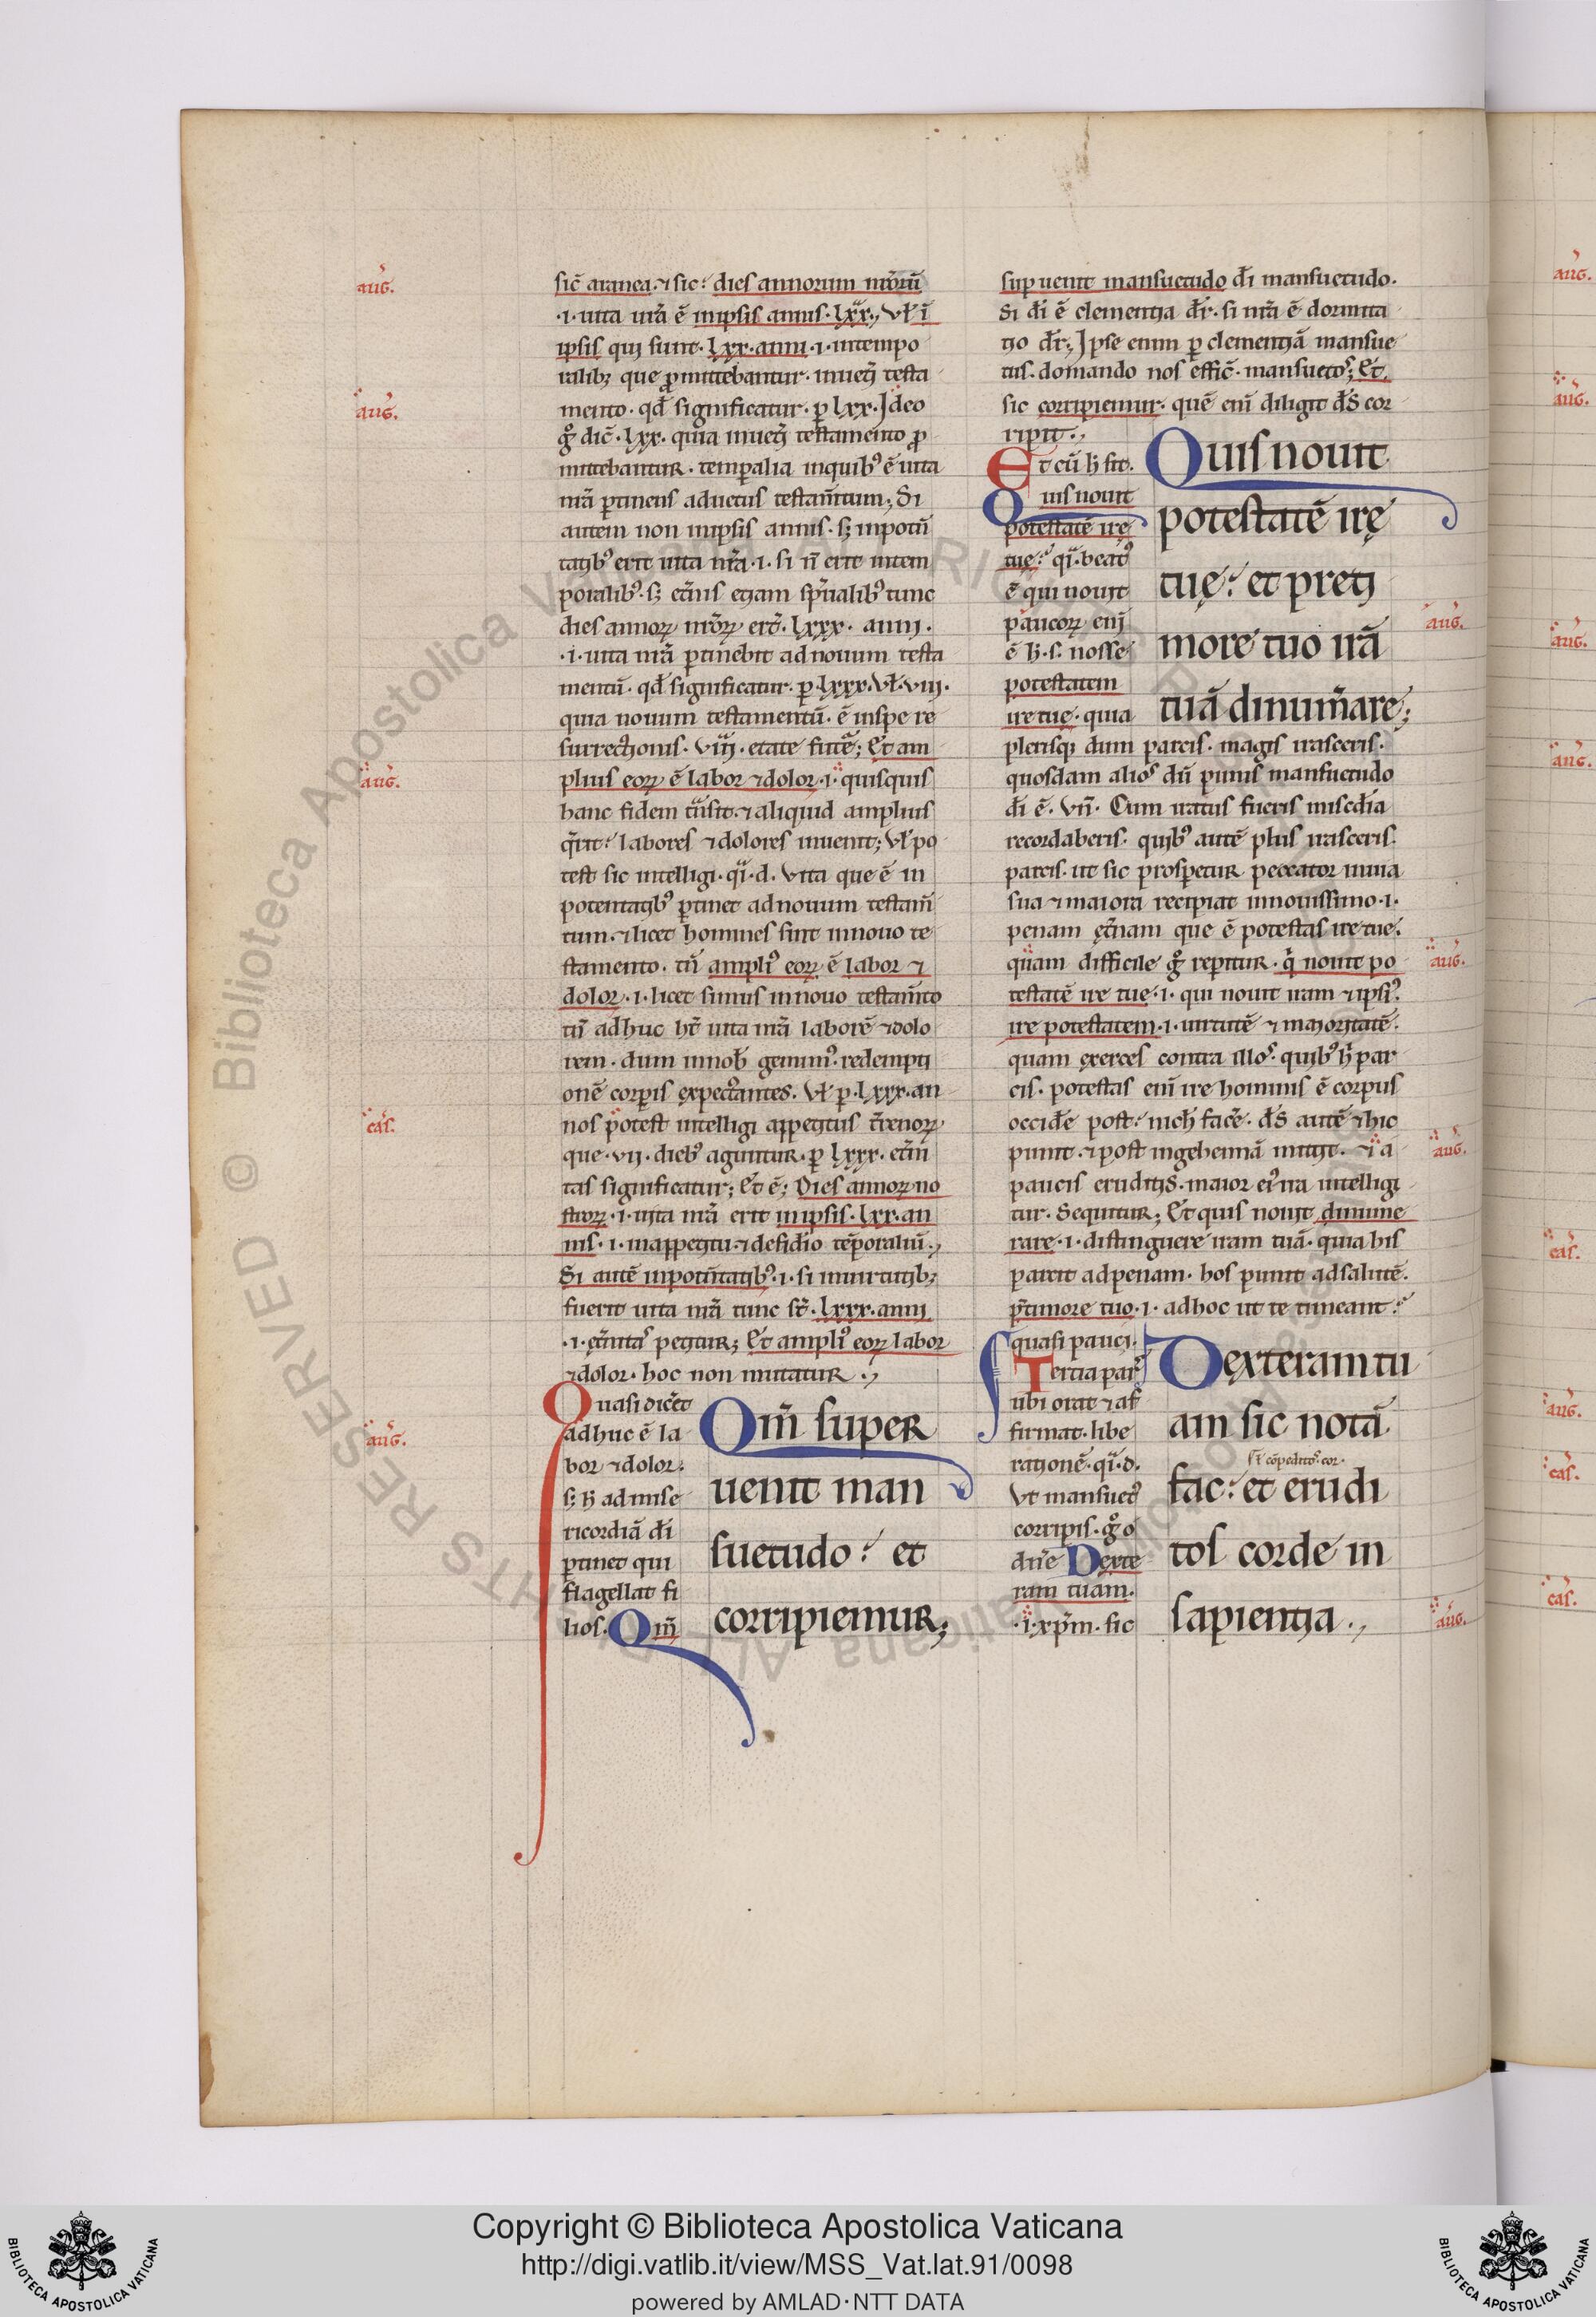 sic̄ aranea. ⁊ sic: dies annorum nr̄orū
.i. uita nr̄a ē in ipsis annis. lxx., Vl̄ ī
ipsis qui sunt. lxx. anni .i. in tempo
ralib; que ꝓmittebantur. in ueti testa
mento. qd̄ significatur. ꝑ lxx. Ideo
gͦ dic̄. lxx. quia in ueti testamento ꝓ
mittebantur. temporalia in quibꝰ ē uita
nr̄a ꝑtinens ad uetus testam̄tum; Si
autem non in ipsis annis. s; in potē
tatibꝰ erit uita nr̄a .i. si n̄ erit in tem
poralibꝰ. s; et̄nis etiam sp̄ualibꝰ tunc
dies annoꝝ nr̄oꝝ ert̄. lxxx. anni.
.i. uita nr̄a ꝑtinebit ad nouum testa
mentū. qd̄ significatur. ꝑ lxxx. Vl̄. viii.
quia nouum testamentū. ē in spe re
surrectionis. viii. etate fut̄e; Et am
plius eoꝝ ē labor ⁊ dolor .i. quisquis
hanc fidem t̄nsit. ⁊ aliquid amplius
q̄rit: labores ⁊ dolores inuenit; Vl̄ po
test sic intelligi. q̄i. d. Vita que ē in
potentatibꝰ ꝑtinet ad nouum testam̄
tum. ⁊ licet homines sint in nouo te
stamento. tn̄ ampliꝰ eoꝝ ē labor ⁊
dolor .i. licet simus in nouo testam̄to
tn̄ adhuc ht̄ uita nr̄a laborē ⁊ dolo
rem. dum in nob̄ gemimꝰ. redempti
onē corꝑis expectantes. Vl̄ ꝑ. lxxx. an
nos potest intelligi appetitus t̄renoꝝ
que .vii. diebꝰ aguntur. ꝑ lxxx. et̄ni
tas significatur; Et ē; Dies annoꝝ no
stroꝝ .i. uita nr̄a erit in ipsis. lxx. an
nis .i. in appetitu. ⁊ desid̄io tēporaliū.,
Si autē in potn̄tatibꝰ .i. si in uirtutib;
fuerit uita nr̄a tunc st̄. lxxx. anni
.i. et̄nitas petitur; Et ampliꝰ eoꝝ labor
⁊ dolor. hoc non mutatur .,
Quasi dic̄et
adhuc ē la
bor ⁊ dolor:
s; h̄ ad mise
ricordiā dī
ꝑtinet qui
flagellat fi
lios. Qm̄
Qm̄ super
uenit man
suetudo: et
corripiemur;
suꝑuenit mansuetudo dī mansuetudo.
Si dī ē clementia dr̄. si nr̄a ē domita
tio dr̄; Ipse enim ꝑ clementiā mansue
tus. domando nos effic̄. mansuetoˢ; Et
sic corripiemur. quē eni diligit ds̄ cor
ripit.,
Et cū h̄ sit.
Quis nouit
potestatē irę
tuę: q̄i. beatꝰ
ē qui nouit
paucoꝝ eni
ē h̄. s. nosse
potestatem
ire tue. quia
Quis nouit
potestatē irę
tuę: et pretı
more tuo irā
tuā dinum̄are;
plerisq; dum parcis. magis irasceris.
quosdam alioˢ dū punis mansuetudo
dī ē. Vn̄. Cum iratus fueris misc̄dia
recordaberis. quibꝰ autē plus irasceris.
parcis. ut sic prosꝑetur peccator in uia
sua ⁊ maiora recipiat in nouissimo .i.
penam et̄nam que ē potestas ire tue.
quam difficile gͦ reꝑitur. q̄ nouit po
testatē ire tue .i. qui nouit iram ⁊ ipsiꝰ
ire potestatem .i. uirtutē ⁊ maioritatē.
quam exerces contra illoˢ. quibꝰ h̄ par
cis. potestas eni ire hominis ē corpus
occid̄e post: nich̄ fac̄e. ds̄ autē ⁊ hic
punit. ⁊ post in gehennā mittit. ⁊ a
paucis eruditis. maior eiꝰ ira intelligi
tur. Sequitur; Et quis nouit dinume
rare .i. distinguere iram tuā. quia his
parcit ad penam. hos punit ad salutē.
p̄ timore tuo .i. ad hoc ut te timeant:
quasi pauci.
Tertia parˢ
ubi orat ⁊ af
firmat. libe
rationē. q̄i. d.
Vt mansuetꝰ
corripis. gͦ o
dn̄e Dexte
ram tuam.
.i. xp̄m. sic
Dexteram tu
am sic notā
fac: et erudi
tos corde in
sapientia .,
auḡ.
auḡ.
auḡ.
cas̄.
auḡ.
auḡ.
auḡ.
auḡ.
auḡ.
Copyright © Biblioteca Apostolica Vaticana
http://digi.vatlib.it/view/MSS_Vat.lat.91/0098
powered by AMLAD·NTT DATA
BIBLIOTECA APOSTOLICA VATICANA
BIBLIOTECA APOSTOLICA VATICANA